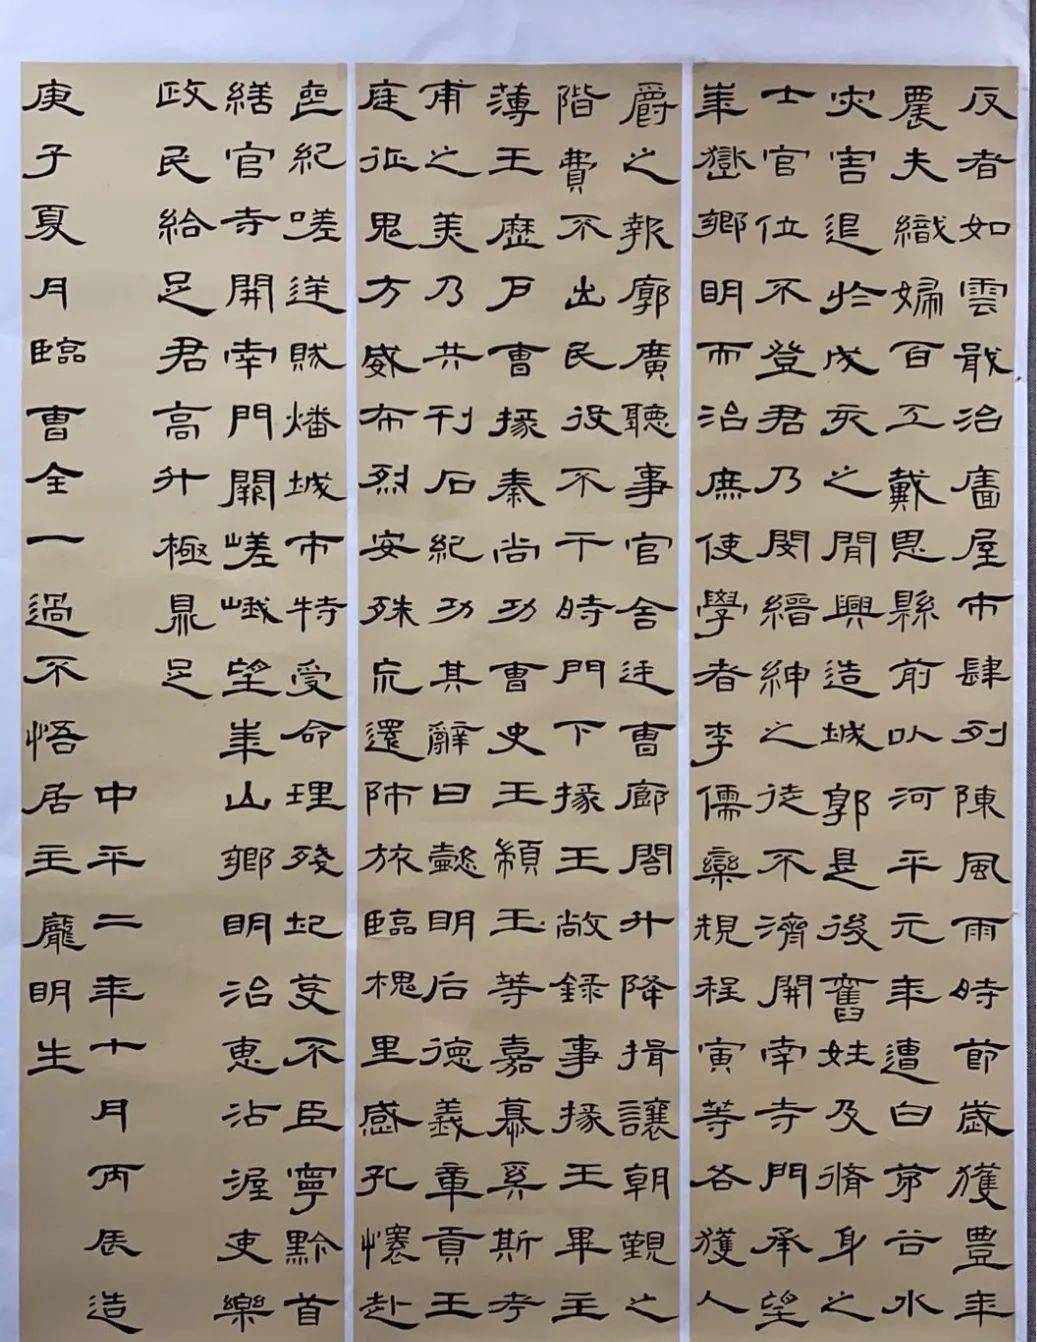 反者如雲戢治廧屋市肆列陳風雨時節歲獲豐年
農夫織婦百工戴恩縣前以河平元年遭白茅谷水
災害退於戌亥之間興造城郭是後舊姓及脩身之
士官位不登君乃閔縉紳之徒不濟開南寺門承望
華嶽鄉明而治庶使學者李儒欒規程寅等各獲人
爵之報廓廣聽事官舍廷曹廊閣升降揖讓朝覲之
階費不出民役不干時門下掾王敞錄事掾王畢主
薄王歷戶曹掾秦尚功曹史王顓王等嘉慕奚斯考
甫之美乃共刊石紀功其辭曰懿明后德義章貢王
庭征鬼方威布烈安殊荒還師旅臨槐里感孔懷赴
喪紀嗟逆賊燔城市特受命理殘圮芟不臣寧黔首
繕官寺開南門闕嵯峨望華山鄉明治惠沾渥吏樂
政民給足君高升極鼎足
中平二年十月丙辰造
庚子夏月臨曹全一過不悟居主龐明生